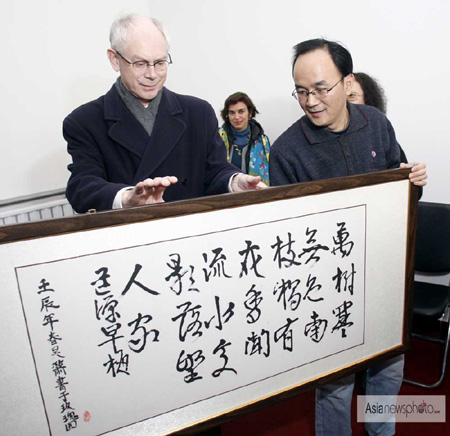 萬樹寒
無色南
枝獨有
花香聞
流水處
影落野
人家
道源早梅
壬辰年春書于玫瑰園
Asianewsphoto.com